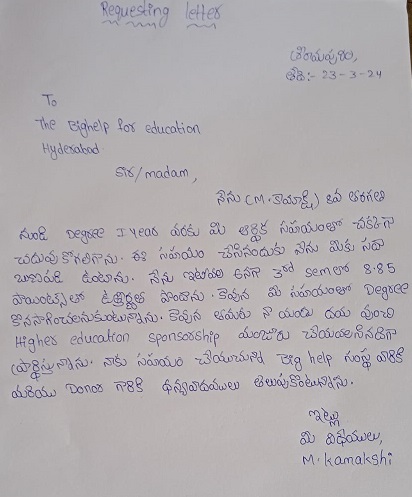 Requesting letter
తేది:- 23-3-24
To
The Bighelp for education
Hyderabad
Sir/madam,
నేను (M. కామాక్షి) 8వ తరగతి
నుండి Degree I year వరకు మీ ఆర్థిక సహాయంతో చక్కగా
చదువుకోగలిగాను. ఈ సహాయం చేసినందుకు నేను మీకు సదా
బుణపడి ఉంటాను. నేను ఇటీవల 3rd semలో 8.85
పాయింట్స్ లో ఉత్తీర్ణత పొందాను. కావున మీ సహాయంతో Degree
కొనసాగించాలనుకుంటున్నాను. కావున తమరు నా యందు దయ వుంచి
Higher education sponsorship మంజూరు చేయవలసినదిగా
ప్రార్థిస్తున్నాను. నాకు సహాయం చేయుచున్న Big help సంస్థ వారికి
మరియు Donor గారికి ధన్యవాదములు తెలుపుకొంటున్నాను.
ఇట్లు
మీ విధేయులు,
M. Kamakshi